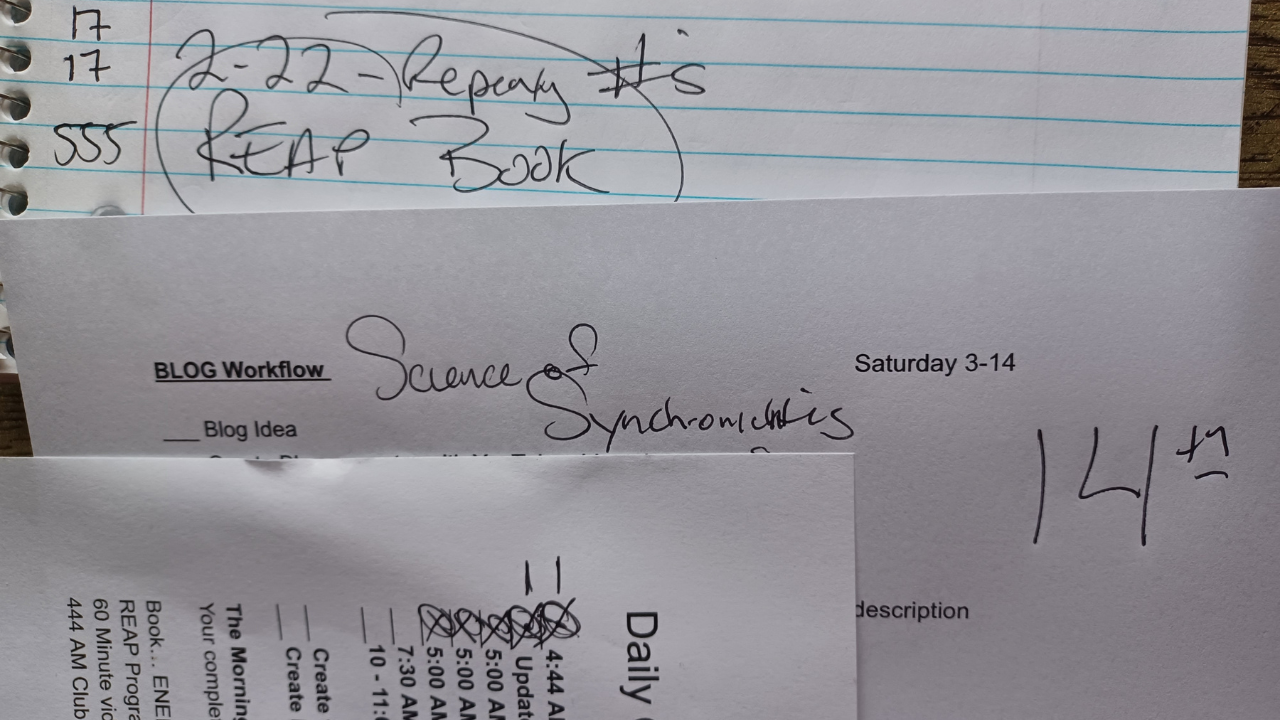 17
17 2-22- Repeatg #'s
555 REAP Book
BLOG Workflow Science of Saturday 3-14
Synchronicities
___ Blog Idea
14th
description
Daily
4:44 A
Updat
5:00 A
5:00 AM
5:00 AM
___ 7:30 AM
___ 10 - 11:
___ Create
___ Create
The Morning
Your comple
Book... ENE
REAP Progra
60 Minute vid
444 AM Club